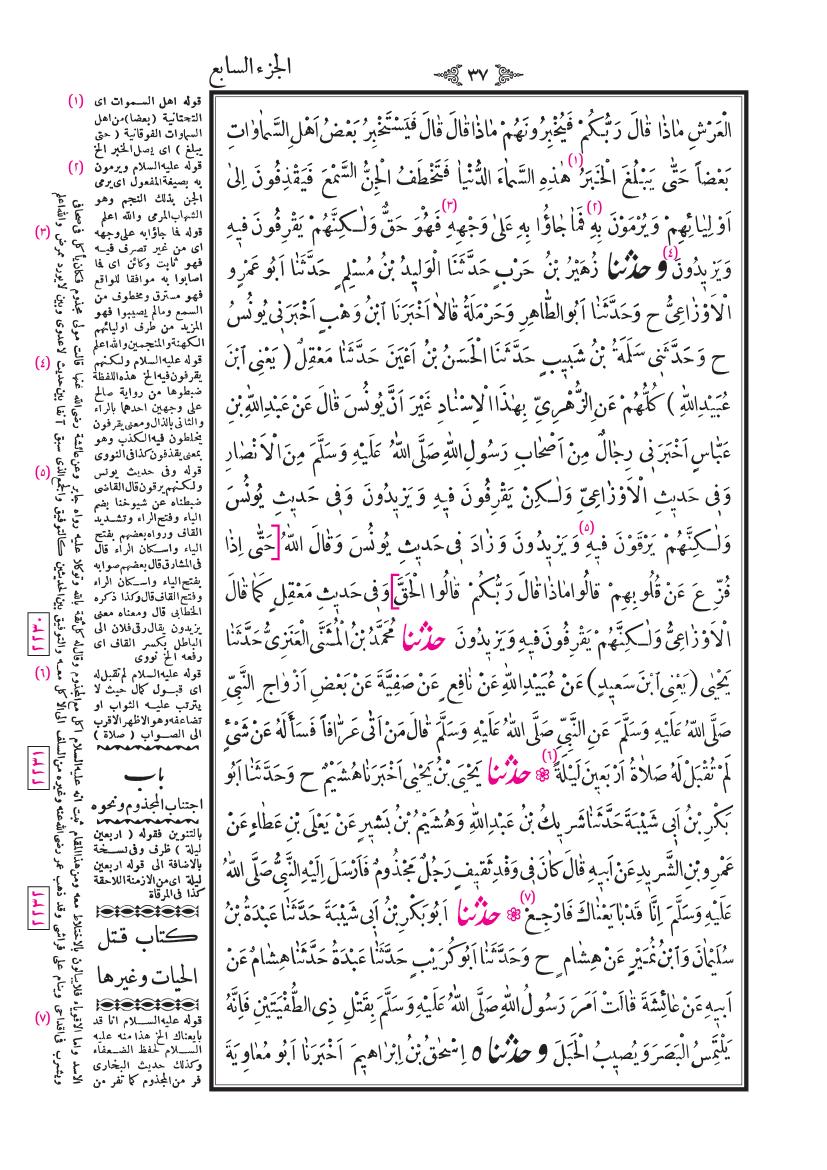 الجزء السابع
٣٧
الْعَرْشِ مَاذَا قَالَ رَبُّكُمْ فَيُخْبِرُونَهُمْ مَاذَا قَالَ قَالَ فَيَسْتَخْبِرُ بَعْضُ اَهْلِ السَّمَاوَاتِ
بَعْضاً حَتّٰى يَبْلُغَ الْخَبَرُ (١) هٰذِهِ السَّمَاءَ الدُّنْيَا فَتَخْطَفُ الْجِنُّ السَّمْعَ فَيَقْذِفُونَ اِلٰى
اَوْلِيَائِهِمْ وَيُرْمَوْنَ (٢) بِهِ فَمَا جَاؤُا بِهِ عَلىٰ وَجْهِهِ (٣) فَهُوَ حَقٌّ وَلٰكِنَّهُمْ يَقْرِفُونَ فِيهِ
وَيَزِيدُونَ (٤) وحدثنا زُهَيْرُ بْنُ حَرْبٍ حَدَّثَنَا الْوَلِيدُ بْنُ مُسْلِمٍ حَدَّثَنَا اَبُو عَمْرٍو
الْاَوْزَاعِيُّ ح وَحَدَّثَنَا اَبُو الطَّاهِرِ وَحَرْمَلَةُ قَالاَ اَخْبَرَنَا ابْنُ وَهْبٍ اَخْبَرَنِي يُونُسُ
ح وَحَدَّثَنِي سَلَمَةُ بْنُ شَبِيبٍ حَدَّثَنَا الْحَسَنُ بْنُ اَعْيَنَ حَدَّثَنَا مَعْقِلٌ ( يَعْنِي ابْنَ
عُبَيْدِاللّٰهِ ) كُلُّهُمْ عَنِ الزُّهْرِيِّ بِهٰذَا الْاِسْنَادِ غَيْرَ اَنَّ يُونُسَ قَالَ عَنْ عَبْدِ اللّٰهِ بْنِ
عَبَّاسٍ اَخْبَرَنِي رِجَالٌ مِنْ اَصْحَابِ رَسُولِ اللّٰهِ صَلَّى اللّٰهُ عَلَيْهِ وَسَلَّمَ مِنَ الْاَنْصَارِ
وَفِي حَدِيثِ الْاَوْزَاعِيِّ وَلٰكِنْ يَقْرِفُونَ فِيهِ وَيَزِيدُونَ وَفِي حَدِيثِ يُونُسَ
وَلٰكِنَّهُمْ يَرْقَوْنَ فِيهِ (٥) وَيَزِيدُونَ وَزَادَ فِي حَدِيثِ يُونُسَ وَقَالَ اللّٰهُ [حَتّٰى اِذَا
فُزِّعَ عَنْ قُلُوبِهِمْ قَالُوا مَاذَا قَالَ رَبُّكُمْ قَالُوا الْحَقَّ] وَفِي حَدِيثِ مَعْقِلٍ كَمَا قَالَ
الْاَوْزَاعِيُّ وَلٰكِنَّهُمْ يَقْرِفُونَ فِيهِ وَيَزِيدُونَ حدثنا مُحَمَّدُ بْنُ الْمُثَنَّى الْعَنَزِيُّ حَدَّثَنَا
يَحْيٰى (يَعْنِي ابْنَ سَعِيدٍ) عَنْ عُبَيْدِ اللّٰهِ عَنْ نَافِعٍ عَنْ صَفِيَّةَ عَنْ بَعْضِ اَزْوَاجِ النَّبِيِّ
صَلَّى اللّٰهُ عَلَيْهِ وَسَلَّمَ عَنِ النَّبِيِّ صَلَّى اللّٰهُ عَلَيْهِ وَسَلَّمَ قَالَ مَنْ اَتٰى عَرَّافاً فَسَأَلَهُ عَنْ شَيْءٍ
لَمْ تُقْبَلْ لَهُ صَلاَةُ اَرْبَعِينَ لَيْلَةً (٦) حدثنا يَحْيَى بْنُ يَحْيٰى اَخْبَرَنَا هُشَيْمٌ ح وَحَدَّثَنَا اَبُو
بَكْرِ بْنُ اَبِي شَيْبَةَ حَدَّثَنَا شَرِيكُ بْنُ عَبْدِ اللّٰهِ وَهُشَيْمُ بْنُ بَشِيرٍ عَنْ يَعْلَى بْنِ عَطَاءٍ عَنْ
عَمْرِو بْنِ الشَّرِيدِ عَنْ اَبِيهِ قَالَ كَانَ فِي وَفْدِ ثَقِيفٍ رَجُلٌ مَجْذُومٌ فَاَرْسَلَ اِلَيْهِ النَّبِيُّ صَلَّى اللّٰهُ
عَلَيْهِ وَسَلَّمَ اِنَّا قَدْ بَايَعْنَاكَ فَارْجِعْ (٧) حدثنا اَبُو بَكْرِ بْنُ اَبِي شَيْبَةَ حَدَّثَنَا عَبْدَةُ بْنُ
سُلَيْمَانَ وَابْنُ نُمَيْرٍ عَنْ هِشَامٍ ح وَحَدَّثَنَا اَبُو كُرَيْبٍ حَدَّثَنَا عَبْدَةُ حَدَّثَنَا هِشَامٌ عَنْ
اَبِيهِ عَنْ عَائِشَةَ قَالَتْ اَمَرَ رَسُولُ اللّٰهِ صَلَّى اللّٰهُ عَلَيْهِ وَسَلَّمَ بِقَتْلِ ذِي الطُّفْيَتَيْنِ فَاِنَّهُ
يَلْتَمِسُ الْبَصَرَ وَيُصِيبُ الْحَبَلَ وحدثنا ه اِسْحٰقُ بْنُ اِبْرَاهِيمَ اَخْبَرَنَا اَبُو مُعَاوِيَةَ
(١) قوله اهل السموات اى
التحتانية (بعضا) من اهل
السماوات الفوقانية ( حتى
يبلغ ) اى يصل الخبر الخ
(٢) قوله عليه السلام ويرمون
به بصيغة المفعول اى يرمى
الجن بذلك النجم وهو
الشهاب المرمى والله اعلم
(٣) قوله فما جاؤا به على وجهه
اى من غير تصرف فيه
فهو ثابت وكائن اى فما
اصابوا به موافقا للواقع
فهو مسترق ومخطوف من
السمع ومالم يصيبوا فهو
المزيد من طرف اوليائهم
الكهنة والمنجمين والله اعلم
(٤) قوله عليه السلام ولكنهم
يقرفون فيه الخ هذه اللفظة
ضبطوها من رواية صالح
على وجهين احدهما بالراء
والثانى بالذال ومعنى يقرفون
يخلطون فيه الكذب وهو
بمعنى يقذفون كذا فى النووى
(٥) قوله وفى حديث يونس
ولكنهم يرقون قال القاضى
ضبطناه عن شيوخنا بضم
الياء وفتح الراء وتشديد
القاف ورواه بعضهم بفتح
الياء واسكان الراء قال
فى المشارق قال بعضهم صوابه
بفتح الياء واسكان الراء
وفتح القاف قال وكذا ذكره
الخطابى قال ومعناه معنى
يزيدون يقال رقى فلان الى
الباطل بكسر القاف اى
رفعه الخ نووى
(٦) قوله عليه السلام لم تقبل له
اى قبول كمال حيث لا
يترتب عليه الثواب او
تضاعفه وهو الاظهر الاقرب
الى الصواب ( صلاة )
باب
اجتناب المجذوم ونحوه
بالتنوين فقوله ( اربعين
ليلة ) ظرف وفى نسخة
بالاضافة الى قوله اربعين
ليلة اى من الازمنة اللاحقة
كذا فى المرقاة
كتاب قتل
الحيات وغيرها
(٧) قوله عليه السلام انا قد
بايعناك الخ هذا منه عليه
السلام لحفظ الضعفاء
وكذلك حديث البخارى
فر من المجذوم كما تفر من
٢٢٣٠
٢٢٣١
٢٢٣٢